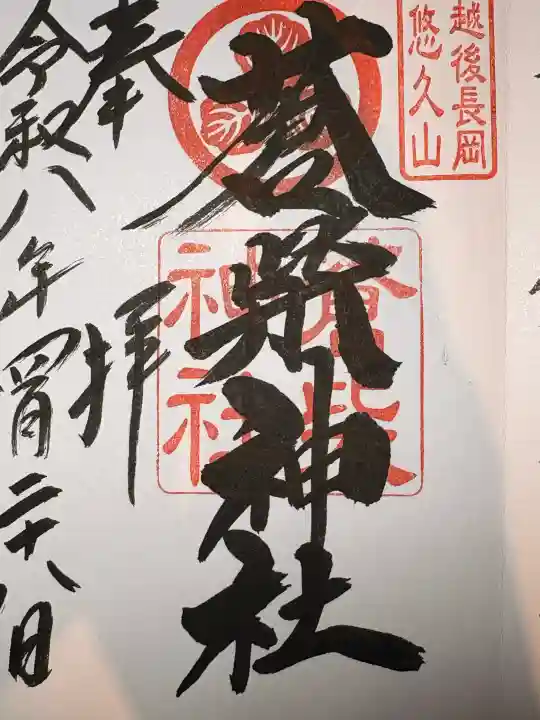 越後長岡
悠久山
蒼柴神社
蒼柴
神社
奉拝
令和八年四月二十八日